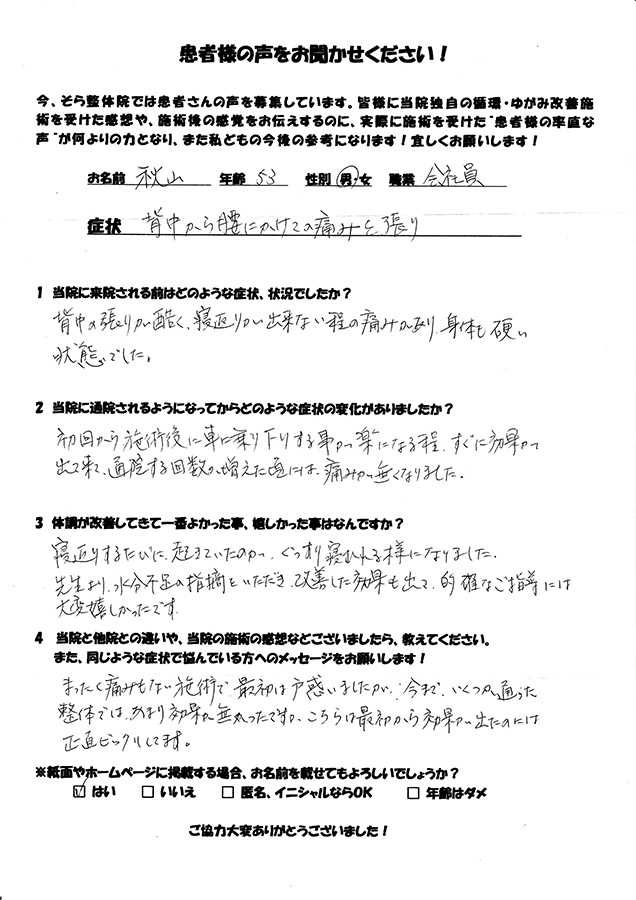 患者様の声をお聞かせください！
今、そら整体院では患者さんの声を募集しています。皆様に当院独自の循環・ゆがみ改善施
術を受けた感想や、施術後の感覚をお伝えするのに、実際に施術を受けた“患者様の率直な
声”が何よりの力となり、また私どもの今後の参考になります！宜しくお願いします！
お名前 秋山 年齢 53 性別 男・女 職業 会社員
症状 背中から腰にかけての痛みと張り
1 当院に来院される前はどのような症状、状況でしたか？
背中の張りが酷く、寝返りが出来ない程の痛みがあり、身体も硬い
状態でした。
2 当院に通院されるようになってからどのような症状の変化がありましたか？
初回から施術後に車に乗り下りする事が楽になる程、すぐに効果が
出て来て、通院する回数が増えた頃には、痛みが無くなりました。
3 体調が改善してきて一番よかった事、嬉しかった事はなんですか？
寝返りするたびに、起きていたのが、ぐっすり寝むれる様になりました。
先生より、水分不足の指摘をいただき、改善した効果も出て、的確なご指導には
大変嬉しかったです。
4 当院と他院との違いや、当院の施術の感想などございましたら、教えてください。
また、同じような症状で悩んでいる方へのメッセージをお願いします！
まったく痛みもない施術で、最初は戸惑いましたが、今まで、いくつか通った
整体では、あまり効果が無かったですが、こちらは最初から効果が出たのには
正直ビックリしてます。
※紙面やホームページに掲載する場合、お名前を載せてもよろしいでしょうか？
☑ はい □ いいえ □ 匿名、イニシャルならOK □ 年齢はダメ
ご協力大変ありがとうございました！